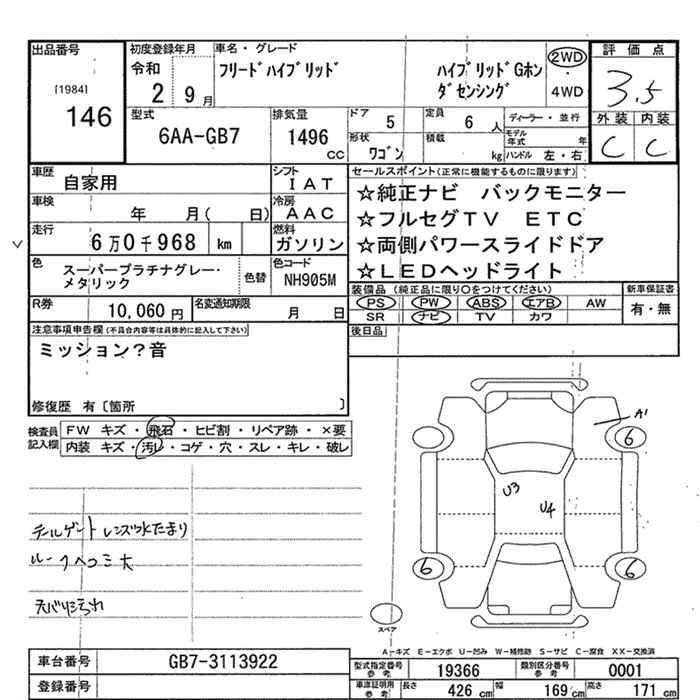 出品番号
[1984]
146
初度登録年月
令和
2 9月
車名・グレード
フリードハイブリッド
ハイブリッドGホン
ダセンシング
2WD
・
4WD
評価点
3.5
外装 内装
C C
型式
6AA-GB7
排気量
1496
CC
ドア
5
定員
6 人
ディーラー・並行
形状
ワゴン
積載
kg
モデル年式 年
ハンドル 左・右
車歴
自家用
シフト
IAT
車検
年 月( 日)
冷房
AAC
走行
6万0千968 km
燃料
ガソリン
色
スーパープラチナグレー・
メタリック
色替
色コード
NH905M
R券
10,060円
名変通知期限
月 日
セールスポイント(正常に機能するものに限ります)
☆純正ナビ バックモニター
☆フルセグTV ETC
☆両側パワースライドドア
☆LEDヘッドライト
装備品 (純正品に限り○をつけてください)
新車保証書
PS PW ABS エアB AW
有・無
SR ナビ TV カワ
後日品
注意事項申告欄(不具合内容等は具体的に記入して下さい)
ミッション?音
修復歴 有〔箇所 〕
検査員
記入欄
FW キズ・飛石・ヒビ割・リペア跡・×要
内装 キズ・汚レ・コゲ・穴・スレ・キレ・破レ
テールゲートレンズ水たまり
ルーフヘコミ大
天バリ汚れ
A1
6
U3
U4
6
6
スペア
A-キズ E-エクボ U-凹み W-補修跡 S-サビ C-腐食 XX-交換済
車台番号
GB7-3113922
登録番号
型式指定番号
参考
19366
類別区分番号
参考
0001
車庫証明用
参考
長さ
426 cm
幅
169 cm
高さ
171 cm